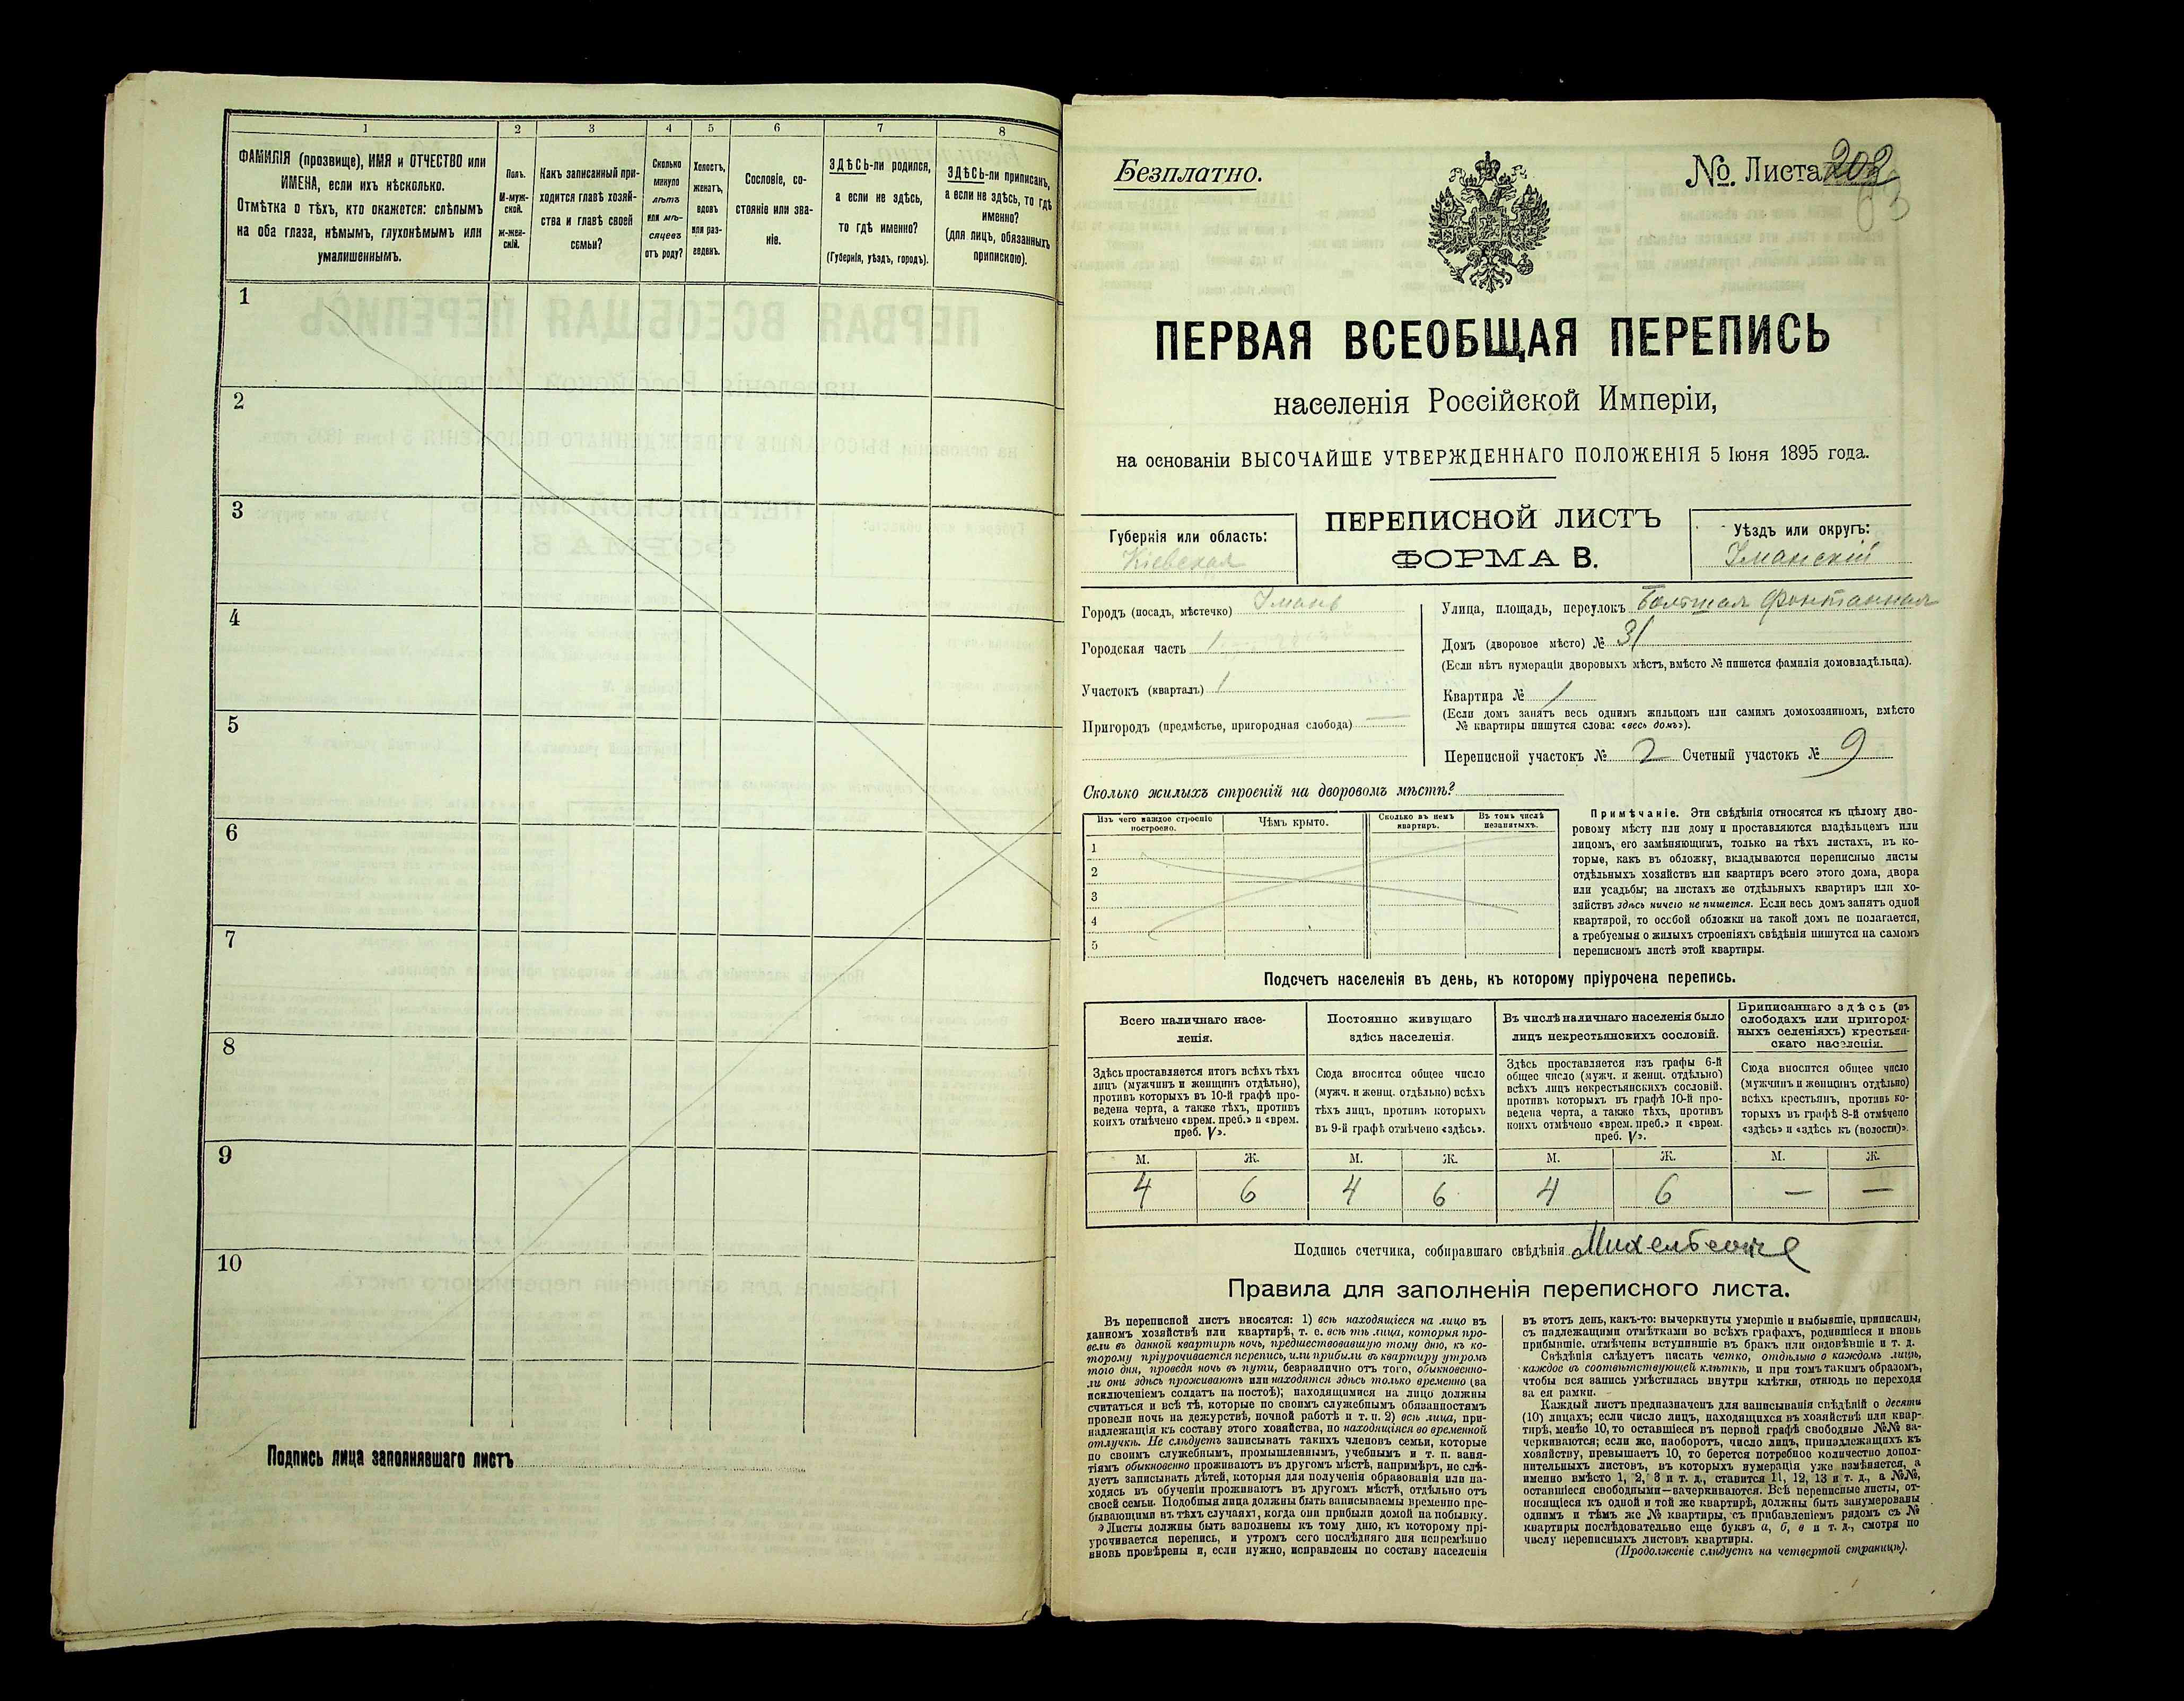 1 2 3 4 5 6 7 8
ФАМИЛІЯ (прозвище), ИМЯ и ОТЧЕСТВО или
ИМЕНА, если ихъ нѣсколько.
Отмѣтка о тѣхъ, кто окажется: слѣпымъ
на оба глаза, нѣмымъ, глухонѣмымъ или
умалишеннымъ.
Полъ.
М-муж-
ской.
Ж-жен-
скій.
Какъ записанный при-
ходится главѣ хозяй-
ства и главѣ своей
семьи?
Сколько
минуло
лѣтъ
или мѣ-
сяцевъ
отъ роду?
Холостъ,
женатъ,
вдовъ
или раз-
веденъ.
Сословіе, со-
стояніе или зва-
ніе.
ЗДѢСЬ-ли родился,
а если не здѣсь,
то гдѣ именно?
(Губернія, уѣздъ, городъ).
ЗДѢСЬ-ли приписанъ,
а если не здѣсь, то гдѣ
именно?
(для лицъ, обязанныхъ
припискою).
1
2
3
4
5
6
7
8
9
10
Подпись лица заполнявшаго листъ
Безплатно.
№. Листа 202
ПЕРВАЯ ВСЕОБЩАЯ ПЕРЕПИСЬ
населенія Россійской Имперіи,
на основаніи ВЫСОЧАЙШЕ УТВЕРЖДЕННАГО ПОЛОЖЕНІЯ 5 Іюня 1895 года.
Губернія или область:
Кіевская
ПЕРЕПИСНОЙ ЛИСТЪ
ФОРМА В.
Уѣздъ или округъ:
Уманскій
Городъ (посадъ, мѣстечко) Умань
Городская часть 1
Участокъ (кварталъ) 1
Пригородъ (предмѣстье, пригородная слобода) —
Улица, площадь, переулокъ Большая Фонтанная
Домъ (дворовое мѣсто) № 31
(Если нѣтъ нумераціи дворовыхъ мѣстъ, вмѣсто № пишется фамилія домовладѣльца).
Квартира № 1
(Если домъ занятъ весь однимъ жильцомъ или самимъ домохозяиномъ, вмѣсто
№ квартиры пишутся слова: «весь домъ»).
Переписной участокъ № 2 Счетный участокъ № 9
Сколько жилыхъ строеній на дворовомъ мѣстѣ?
Изъ чего каждое строеніе
построено.
Чѣмъ крыто.
Сколько въ немъ
квартиръ.
Въ томъ числѣ
незанятыхъ.
1
2
3
4
5
Примѣчаніе. Эти свѣдѣнія относятся къ цѣлому дво-
ровому мѣсту или дому и проставляются владѣльцемъ или
лицомъ, его замѣняющимъ, только на тѣхъ листахъ, въ ко-
торые, какъ въ обложку, вкладываются переписные листы
отдѣльныхъ хозяйствъ или квартиръ всего этого дома, двора
или усадьбы; на листахъ же отдѣльныхъ квартиръ или хо-
зяйствъ здѣсь ничего не пишется. Если весь домъ занятъ одной
квартирой, то особой обложки на такой домъ не полагается,
а требуемыя о жилыхъ строеніяхъ свѣдѣнія пишутся на самомъ
переписномъ листѣ этой квартиры.
Подсчетъ населенія въ день, къ которому пріурочена перепись.
Всего наличнаго насе-
ленія.
Здѣсь проставляется итогъ всѣхъ тѣхъ
лицъ (мужчинъ и женщинъ отдѣльно),
противъ которыхъ въ 10-й графѣ про-
ведена черта, а также тѣхъ, противъ
коихъ отмѣчено «врем. преб.» и «врем.
преб. V».
Постоянно живущаго
здѣсь населенія.
Сюда вносится общее число
(мужч. и женщ. отдѣльно) всѣхъ
тѣхъ лицъ, противъ которыхъ
въ 9-й графѣ отмѣчено «здѣсь».
Въ числѣ наличнаго населенія было
лицъ некрестьянскихъ сословій.
Здѣсь проставляется изъ графы 6-й
общее число (мужч. и женщ. отдѣльно)
всѣхъ лицъ некрестьянскихъ сословій.
противъ которыхъ въ графѣ 10-й про-
ведена черта, а также тѣхъ, противъ
коихъ отмѣчено «врем. преб.» и «врем.
преб. V».
Приписаннаго здѣсь (въ
слободахъ или пригород-
ныхъ селеніяхъ) крестьян-
скаго населенія.
Сюда вносится общее число
(мужчинъ и женщинъ отдѣльно)
всѣхъ крестьянъ, противъ ко-
торыхъ въ графѣ 8-й отмѣчено
«здѣсь» и «здѣсь къ (волости)».
М. Ж. М. Ж. М. Ж. М. Ж.
4 6 4 6 4 6 — —
Подпись счетчика, собиравшаго свѣдѣнія
Правила для заполненія переписного листа.
Въ переписной листъ вносятся: 1) всѣ находящіеся на лицо въ
данномъ хозяйствѣ или квартирѣ, т. е. всѣ тѣ лица, которыя про-
вели въ данной квартирѣ ночь, предшествовавшую тому дню, къ ко-
торому пріурочивается перепись, или прибыли въ квартиру утромъ
того дня, проведя ночь въ пути, безразлично отъ того, обыкновенно-
ли они здѣсь проживаютъ или находятся здѣсь только временно (за
исключеніемъ солдатъ на постоѣ); находящимися на лицо должны
считаться и всѣ тѣ, которые по своимъ служебнымъ обязанностямъ
провели ночь на дежурствѣ, ночной работѣ и т. п. 2) всѣ лица, при-
надлежащія къ составу этого хозяйства, но находящіяся во временной
отлучкѣ. Не слѣдуетъ записывать такихъ членовъ семьи, которые
по своимъ служебнымъ, промышленнымъ, учебнымъ и т. п. заня-
тіямъ обыкновенно проживаютъ въ другомъ мѣстѣ, напримѣръ, не слѣ-
дуетъ записывать дѣтей, которыя для полученія образованія или на-
ходясь въ обученіи проживаютъ въ другомъ мѣстѣ, отдѣльно отъ
своей семьи. Подобныя лица должны быть записываемы временно пре-
бывающими въ тѣхъ случаяхъ, когда они прибыли домой на побывку.
Листы должны быть заполнены къ тому дню, къ которому прі-
урочивается перепись, и утромъ сего послѣдняго дня непремѣнно
вновь провѣрены и, если нужно, исправлены по составу населенія
въ этотъ день, какъ-то: вычеркнуты умершіе и выбывшіе, приписаны,
съ надлежащими отмѣтками во всѣхъ графахъ, родившіеся и вновь
прибывшіе, отмѣчены вступившіе въ бракъ или овдовѣвшіе и т. д.
Свѣдѣнія слѣдуетъ писать четко, отдѣльно о каждомъ лицѣ,
каждое въ соотвѣтствующей клѣткѣ, и при томъ такимъ образомъ,
чтобы вся запись умѣстилась внутри клѣтки, отнюдь не переходя
за ея рамки.
Каждый листъ предназначенъ для записыванія свѣдѣній о десяти
(10) лицахъ; если число лицъ, находящихся въ хозяйствѣ или квар-
тирѣ, менѣе 10, то оставшіеся въ первой графѣ свободные №№ за-
черкиваются; если же, наоборотъ, число лицъ, принадлежащихъ къ
хозяйству, превышаетъ 10, то берется потребное количество допол-
нительныхъ листовъ, въ которыхъ нумерація уже измѣняется, а
именно вмѣсто 1, 2, 3 и т. д., ставится 11, 12, 13 и т. д., а №№,
оставшіеся свободными—зачеркиваются. Всѣ переписные листы, от-
носящіеся къ одной и той же квартирѣ, должны быть занумерованы
однимъ и тѣмъ же № квартиры, съ прибавленіемъ рядомъ съ №
квартиры послѣдовательно еще буквъ а, б, в и т. д., смотря по
числу переписныхъ листовъ квартиры.
(Продолженіе слѣдуетъ на четвертой страницѣ).